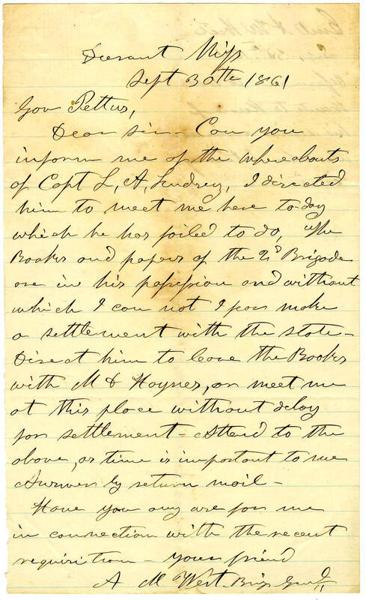 Durant Miss
Sept 30th 1861
Gov Pettus,
Dear Sir - Can you
inform me of the whereabouts
of Capt L, A, Lindsey, I directed
him to meet me here to-day
which he has failed to do, The
Books and papers of the 2d Brigade
are in his possession and without
which I can not make
a settlement with the state -
Direct him to leave the Books
with M D Haynes, or meet me
at this place without delay
for settlement - Attend to the
above, as time is important to me
Answer by return mail -
Have you any use for me
in connection with the recent
requisition - your friend
A M West Brig Genl,